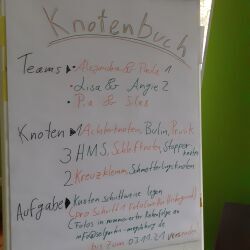 Knotenbuch
Teams ▶ • Alexandra & Paula 1
• Lisa & Angie 2
• Pia & Silas
Knoten ▶ 1 Achterknoten, Bulin, Prusik
3 HMS, Schleifknoten, Stopperknoten
2 Kreuzklemm, Schmetterlingsknoten
Aufgabe ▶ Knoten schrittweise legen
(pro Schritt 1 Foto
(Fotos in nummerierter Reihenfolge an
bis zum 03.11.21 versenden